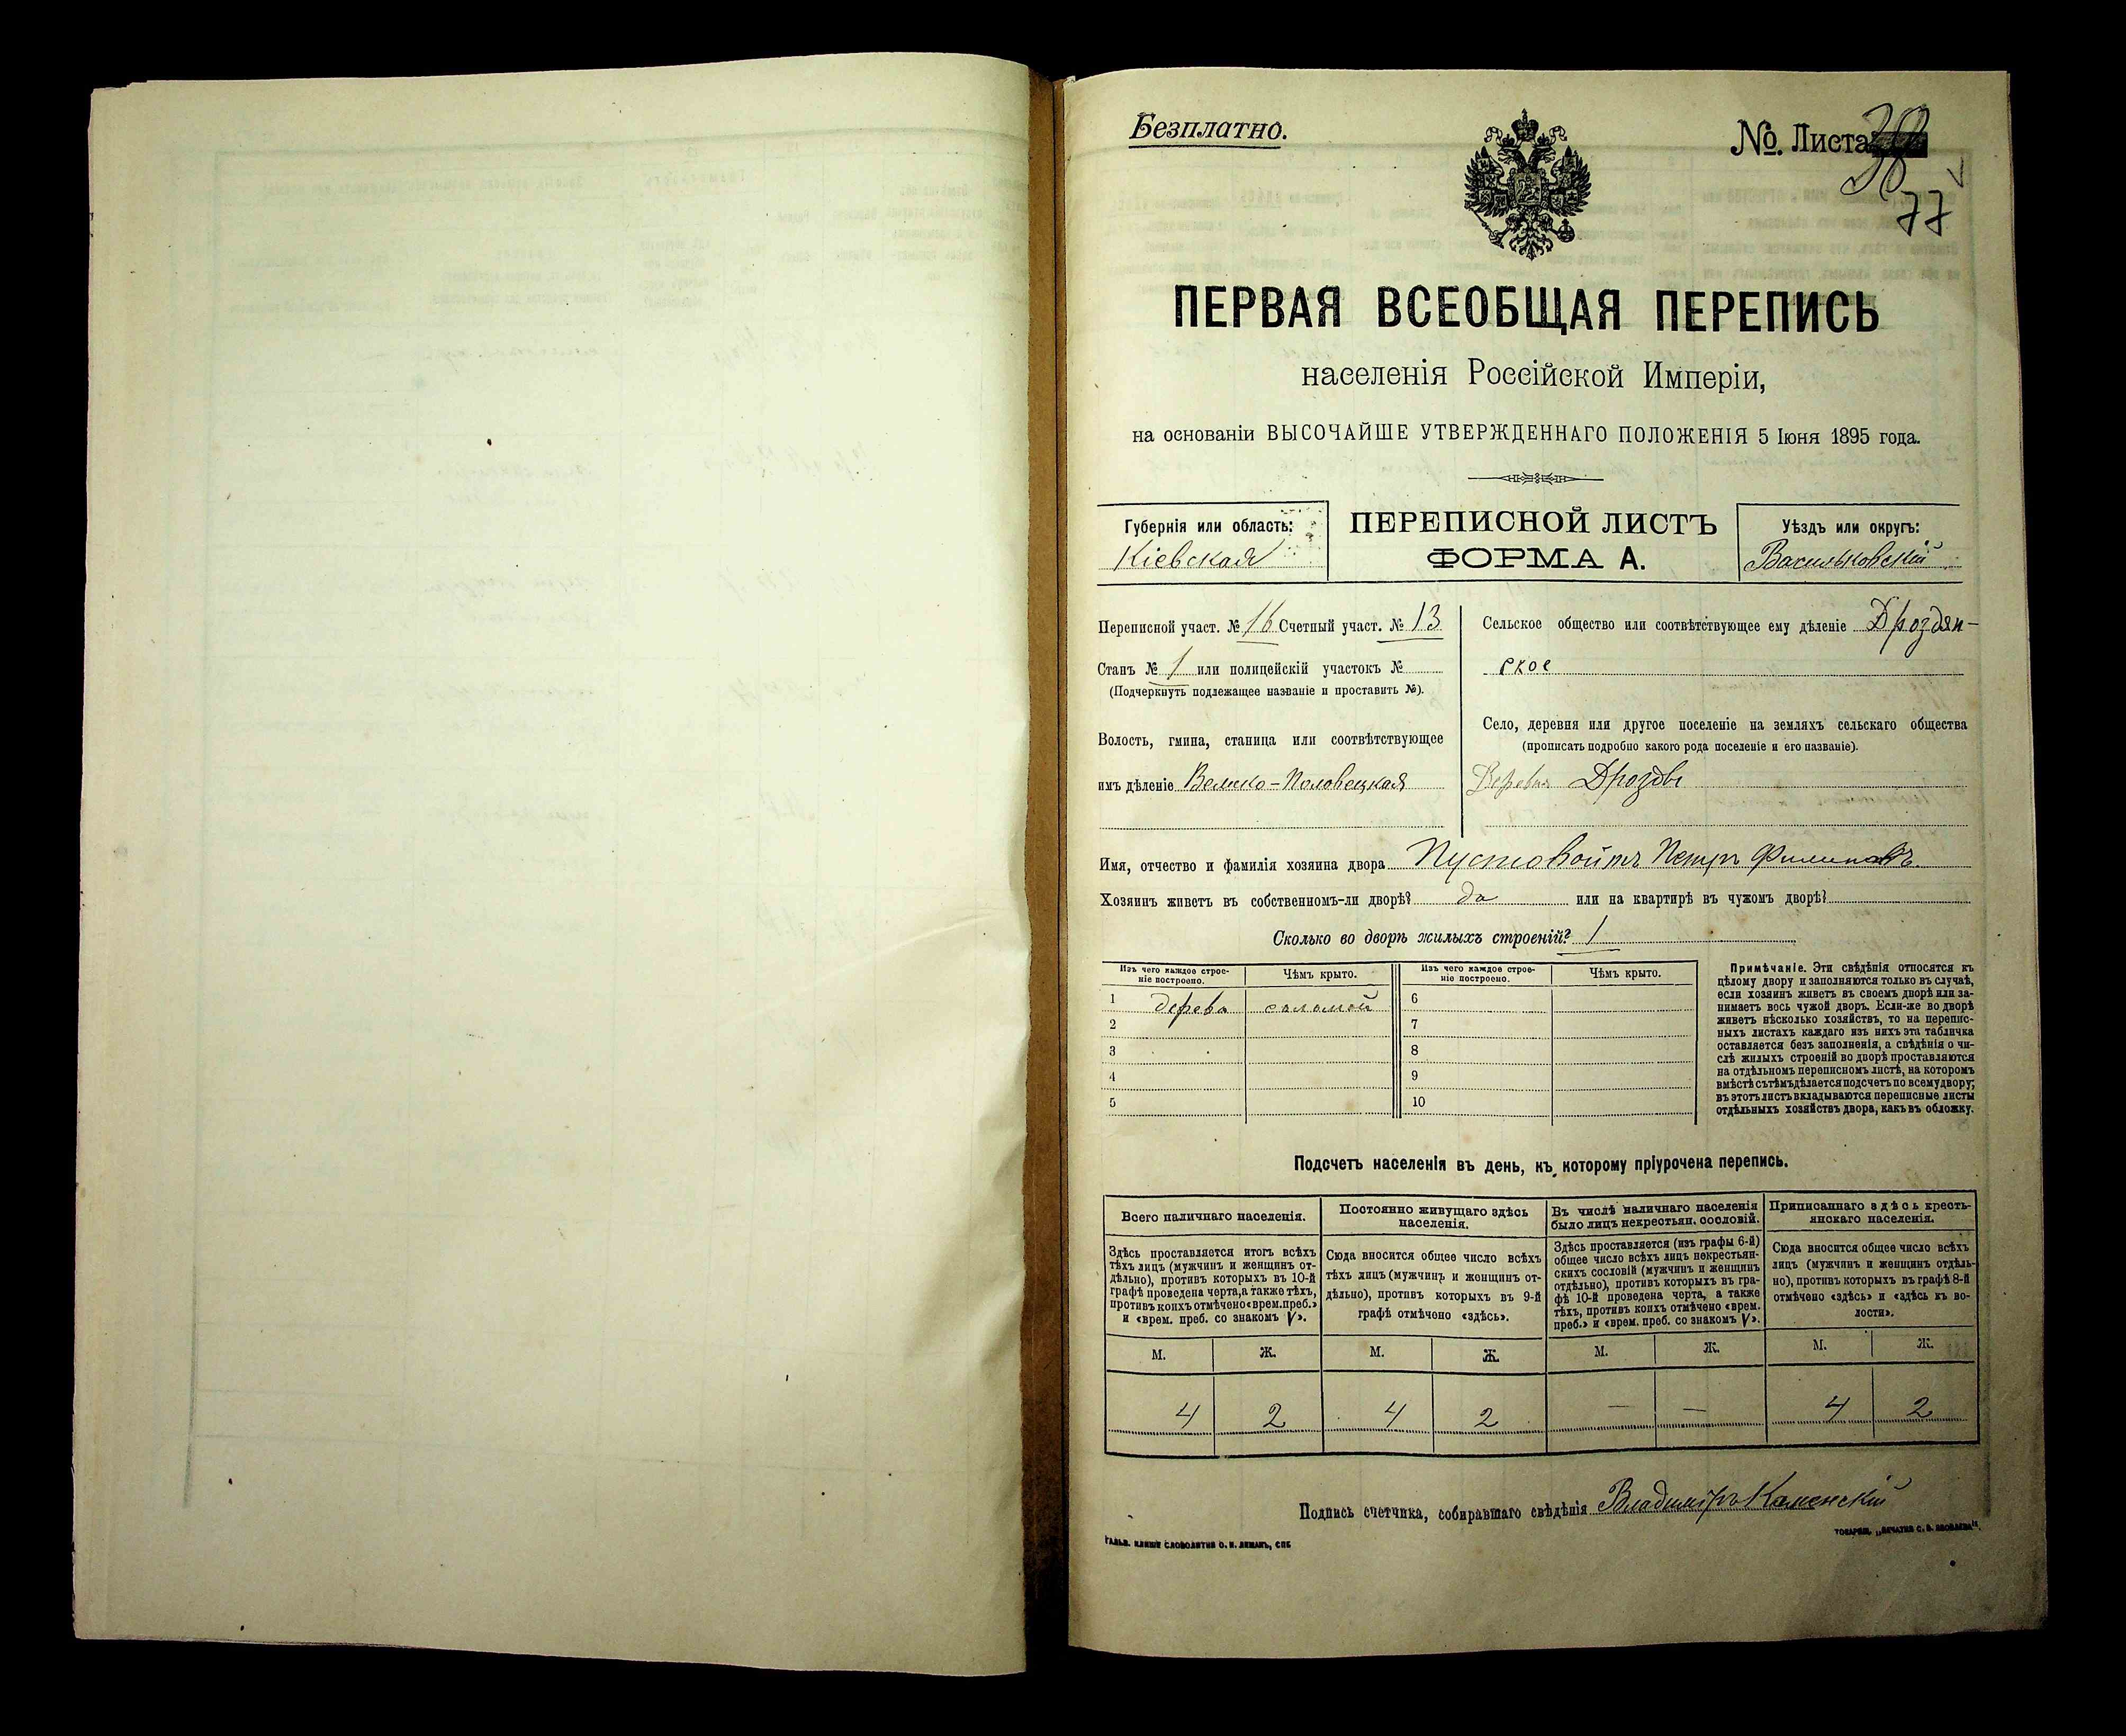 Безплатно.
№. Листа 38
77
ПЕРВАЯ ВСЕОБЩАЯ ПЕРЕПИСЬ
населенія Россійской Имперіи,
на основаніи ВЫСОЧАЙШЕ УТВЕРЖДЕННАГО ПОЛОЖЕНІЯ 5 Іюня 1895 года.
Губернія или область:
Кіевская
ПЕРЕПИСНОЙ ЛИСТЪ
ФОРМА А.
Уѣздъ или округъ:
Васильковскій
Переписной участ. № 16 Счетный участ. № 13
Станъ № 1 или полицейскій участокъ №
(Подчеркнуть подлежащее названіе и проставить №).
Волость, гмина, станица или соотвѣтствующее
имъ дѣленіе Велико-Половецкая
Сельское общество или соотвѣтствующее ему дѣленіе Дроздян-
ское
Село, деревня или другое поселеніе на земляхъ сельскаго общества
(прописать подробно какого рода поселеніе и его названіе).
Деревня Дрозды
Имя, отчество и фамилія хозяина двора Пустовойтъ Петръ Филиповъ
Хозяинъ живетъ въ собственномъ-ли дворѣ? да или на квартирѣ въ чужомъ дворѣ?
Сколько во дворѣ жилыхъ строеній? 1
Изъ чего каждое строе-
ніе построено.
Чѣмъ крыто.
Изъ чего каждое строе-
ніе построено.
Чѣмъ крыто.
1 дерева соломой 6
2 7
3 8
4 9
5 10
Примѣчаніе. Эти свѣдѣнія относятся къ
цѣлому двору и заполняются только въ случаѣ,
если хозяинъ живетъ въ своемъ дворѣ или за-
нимаетъ весь чужой дворъ. Если-же во дворѣ
живетъ нѣсколько хозяйствъ, то на перепис-
ныхъ листахъ каждаго изъ нихъ эта табличка
оставляется безъ заполненія, а свѣдѣнія о чи-
слѣ жилыхъ строеній во дворѣ проставляются
на отдѣльномъ переписномъ листѣ, на которомъ
вмѣстѣ съ тѣмъ дѣлается подсчетъ по всему двору;
въ этотъ листъ вкладываются переписные листы
отдѣльныхъ хозяйствъ двора, какъ въ обложку.
Подсчетъ населенія въ день, къ которому пріурочена перепись.
Всего наличнаго населенія.
Постоянно живущаго здѣсь
населенія.
Въ числѣ наличнаго населенія
было лицъ некрестьян. сословій.
Приписаннаго здѣсь кресть-
янскаго населенія.
Здѣсь проставляется итогъ всѣхъ
тѣхъ лицъ (мужчинъ и женщинъ от-
дѣльно), противъ которыхъ въ 10-й
графѣ проведена черта, а также тѣхъ,
противъ коихъ отмѣчено «врем. преб.»
и «врем. преб. со знакомъ V».
Сюда вносится общее число всѣхъ
тѣхъ лицъ (мужчинъ и женщинъ от-
дѣльно), противъ которыхъ въ 9-й
графѣ отмѣчено «здѣсь».
Здѣсь проставляется (изъ графы 6-й)
общее число всѣхъ лицъ некрестьян-
скихъ сословій (мужчинъ и женщинъ
отдѣльно), противъ которыхъ въ гра-
фѣ 10-й проведена черта, а также
тѣхъ, противъ коихъ отмѣчено «врем.
преб.» и «врем. преб. со знакомъ V».
Сюда вносится общее число всѣхъ
лицъ (мужчинъ и женщинъ отдѣль-
но), противъ которыхъ въ графѣ 8-й
отмѣчено «здѣсь» и «здѣсь къ во-
лости».
М. Ж. М. Ж. М. Ж. М. Ж.
4 2 4 2 — — 4 2
Подпись счетчика, собиравшаго свѣдѣнія Владиміръ Каменскій
ГАЛЬВ. КЛИШЕ СЛОВОЛИТНИ О. И. ЛЕМАНЪ, СПБ
ТОВАРИЩ. „ПЕЧАТНЯ С. П. ЯКОВЛЕВА".